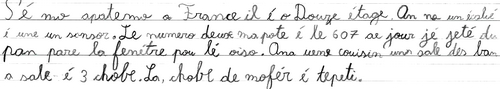 S'é mo apatemo a France il é o Douze étage. An na un
i une un sensor. Le numero deux ma pote é le 607 se jour jé jeté du
pan pare la fenètre pou lé oiso. Ana uene couisin uno sale dès ban
a sale é 3 chobe. La, chobe de mofér é tepeti.